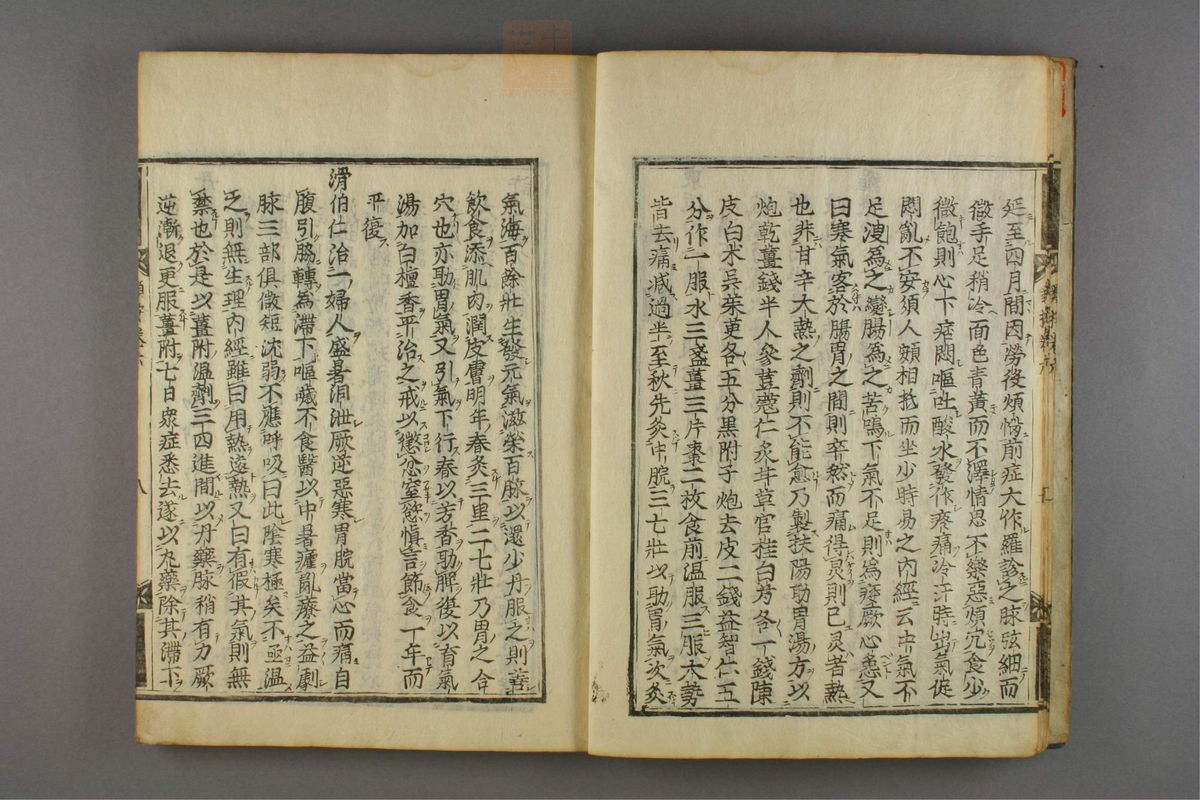 延至四月間因勞役煩惱前症大作羅診之脉弦細而
微手足稍冷面色青黃而不澤情思不樂惡煩冗食少
微飽則心下痞悶嘔吐酸水發作疼痛冷汗時出氣促
悶亂不安須人頞相抵而坐少時易之內經云中氣不
足溲為之變腸為之苦鳴下氣不足則為痿厥心悗又
曰寒氣客於腸胃之間則卒然而痛得炅則已炅者熱
也非甘辛大熱之劑則不能愈乃製扶陽助胃湯方以
炮乾薑錢半人參荳蔻仁炙甘草官桂白芍各一錢陳
皮白术吳茱萸各五分黑附子炮去皮二錢益智仁五
分作一服水三盞薑三片棗二枚食前溫服三服大勢
皆去痛減過半至秋先灸中脘三七壯以助胃氣次灸
氣海百餘壯生發元氣滋榮百脉以還少丹服之則善
飲食添肌肉潤皮膚明年春灸三里二七壯乃胃之合
穴也亦助胃氣又引氣下行春以芳香助脾復以育氣
湯加白檀香平治之戒以懲忿窒慾慎言節食一年而
平復
滑伯仁治一婦人盛暑洞泄厥逆惡寒胃脘當心而痛自
腹引脇轉為滯下嘔噦不食醫以中暑癨亂療之益劇
脉三部俱微短沈弱不應呼吸曰此陰寒極矣不亟溫
之則無生理內經雖曰用熱遠熱又曰有假其氣則無
禁也於是以薑附溫劑三四進間以丹藥脉稍有力厥
逆漸退更服薑附七日眾症悉去遂以丸藥除其滯下